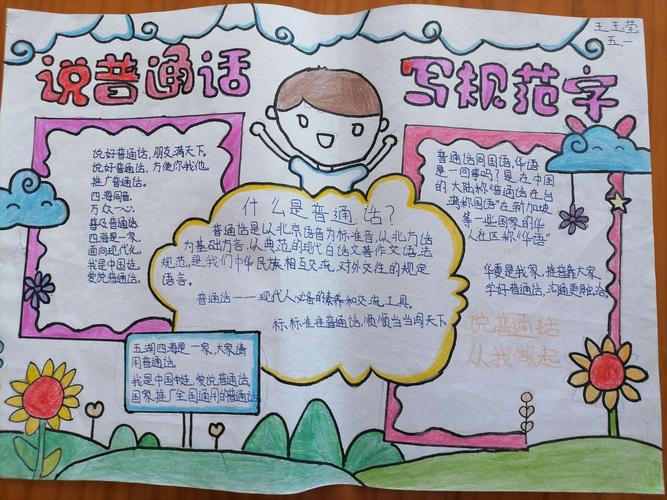 王玉莹
五一
说普通话
写规范字
说好普通话,朋友满天下。
说好普通话,方便你我他。
推广普通话
四海同音
万众一心
普及普通话
四海是一家
面向现代化
我是中国娃
爱说普通话
什么是普通话?
普通话是以北京语音为标准音,以北方话
为基础方言,以典范的现代白话文著作文语法
规范,是我们中华民族相互交流,对外交往的规定
语言。
普通话——现代人必备的素养和交流工具。
标标准准普通话,顺顺当当闯天下
普通话同国语,华语
是一回事吗?是,在中国
的大陆称“普通话在台
湾称国语”在新加坡
等一些国家的华
人社区称“华语”
华夏是我家,推普靠大家。
学好普通话,沟通更融洽
说普通话
从我做起
五湖四海是一家,大家请
用普通话
我是中国娃,爱说普通话,
国家推广全国通用的普通话